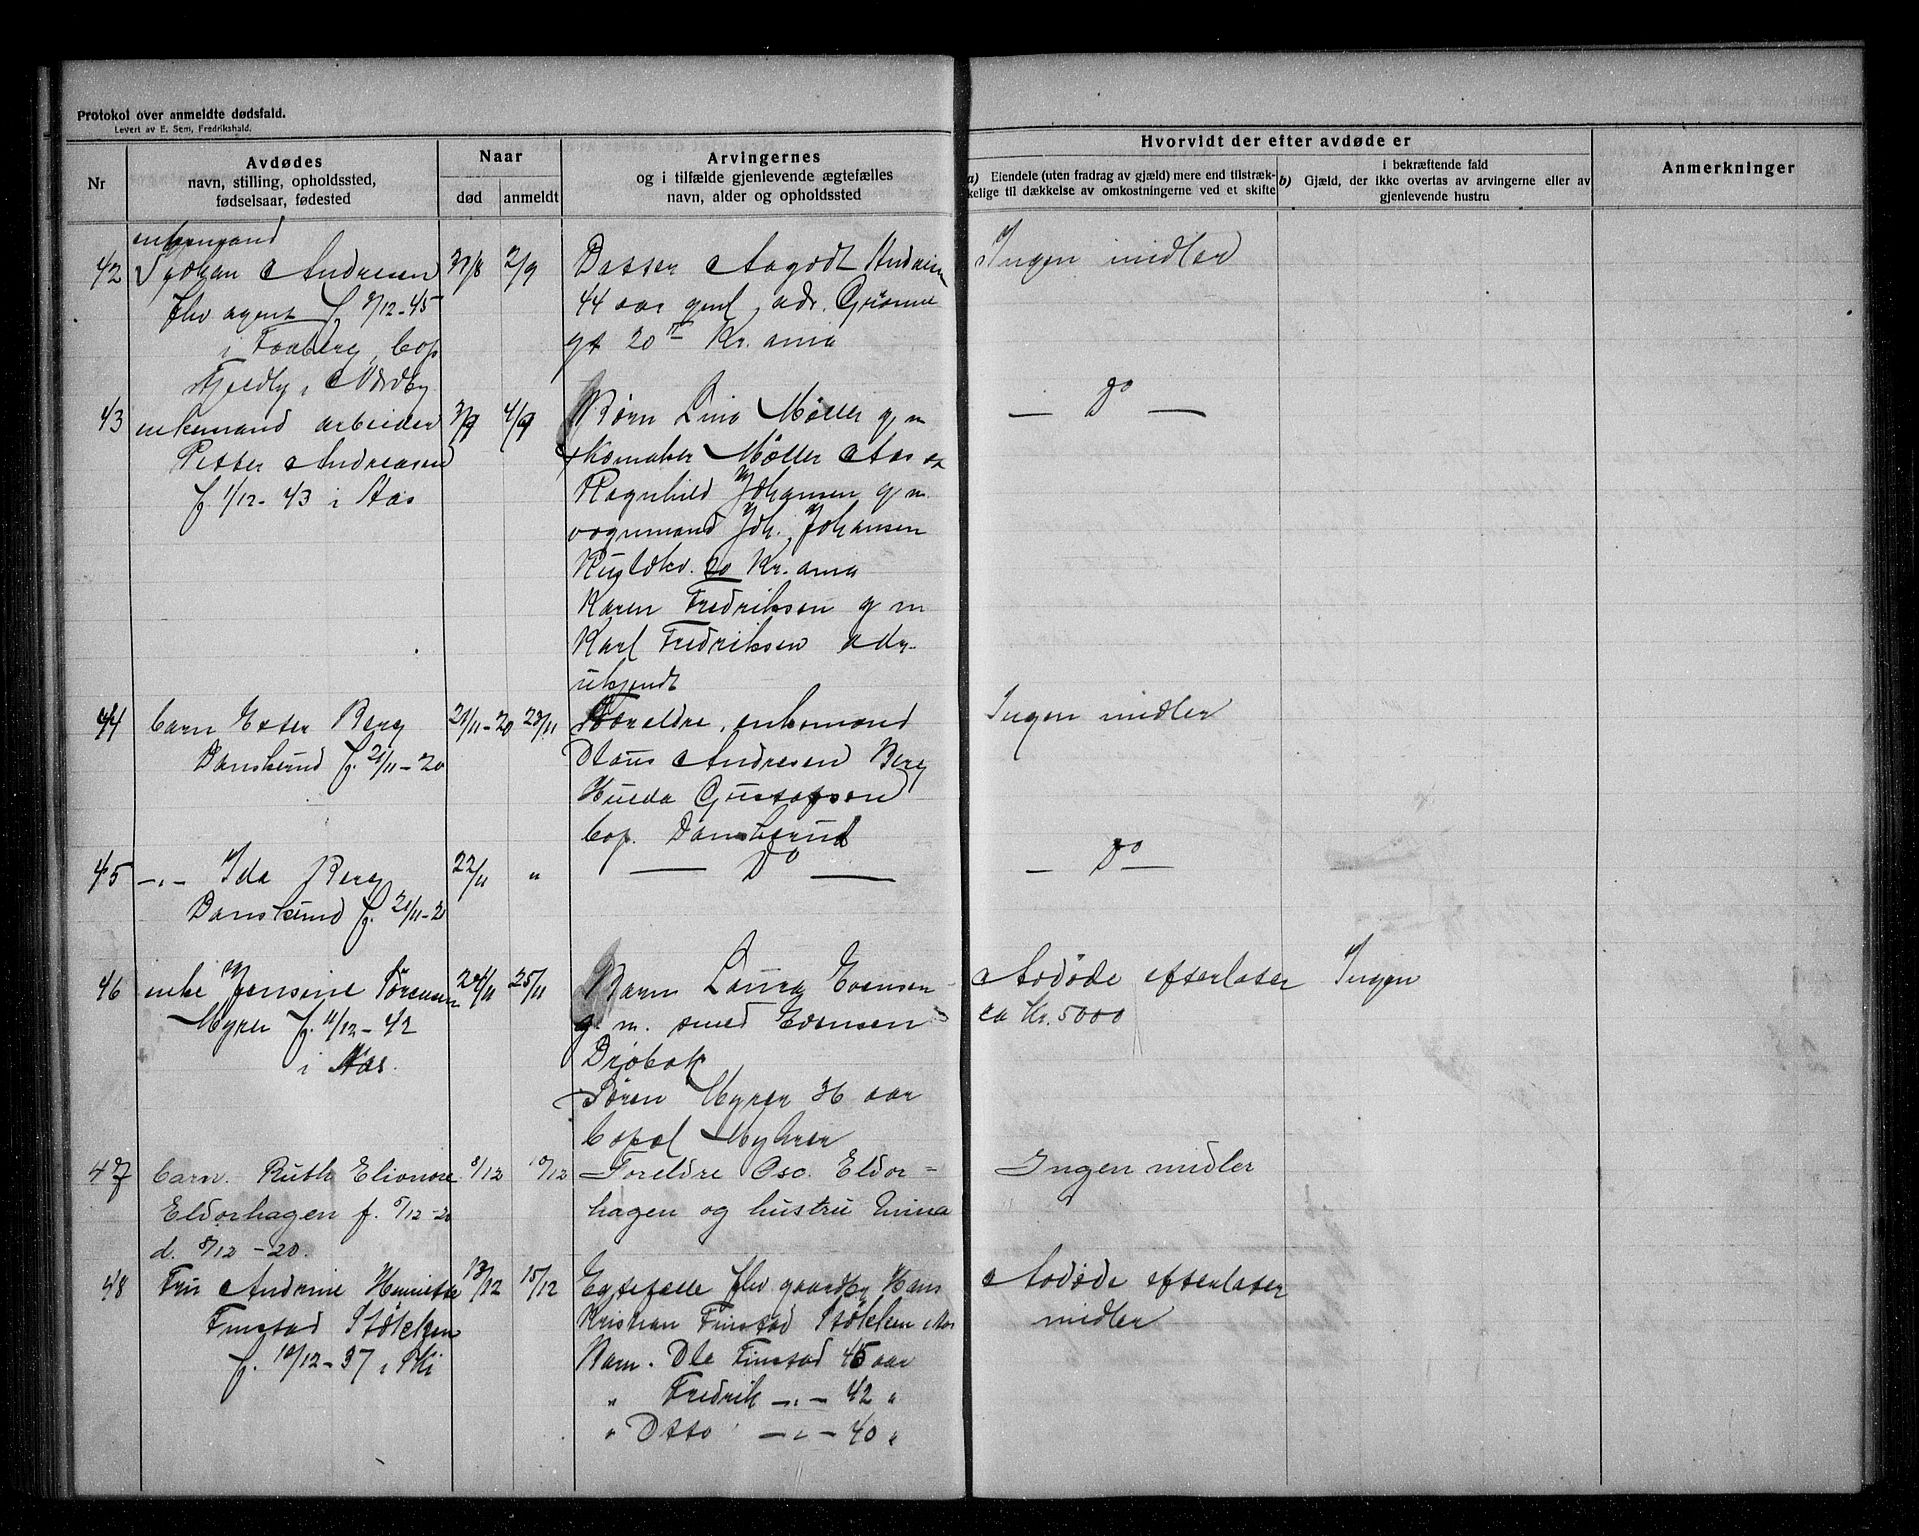 Protokol over anmeldte dødsfald.
Levert av E. Sem, Fredrikshald.
Nr
Avdødes
navn, stilling, opholdssted,
fødselsaar, fødested
Naar
død
anmeldt
Arvingernes
og i tilfælde gjenlevende ægtefælles
navn, alder og opholdssted
Hvorvidt der efter avdøde er
a) Eiendele (uten fradrag av gjæld) mere end tilstræk-
kelige til dækkelse av omkostningerne ved et skifte
i bekræftende fald
b) Gjæld, der ikke overtas av arvingerne eller av
gjenlevende hustru
Anmerkninger
enkemand
42 Johan Andresen 31/8 2/9
fhv agent f. 8/12-45
i Faaberg, bop
Fjeldby i Nordby
Aagodt Andresen
44 aar gml, adr. Grønne
gt 20 Kr.ania
Ingen midler
43 enkemand arbeider 3/9 4/9
Petter Andreasen
f 1/12-43 i Aas
Børn Lina Møller g m
skomaker Møller Aas og
Ragnhild Johansen g m
vognmand Joh. Johansen
20 Kr.ania
Karen Fredriksen g m
Karl Fredriksen adr.
ukjendt
— do —
44 barn Ester Berg 21/11-20 23/11
Danskerud f. 21/11-20
Foreldre, enkemand
Hans Andresen Berg
Hulda Gustafson
bop. Danskerud
Ingen midler
45 -"- Ida Berg 22/11 "
Danskerud f. 21/11-20
— Do —
— do —
46 enke Jensine Sørensen 24/11 25/11
Myrer f. 11/12-42
i Aas.
Barn Laura Evensen
g. m. smed Evensen
Drøbak
Søren Myrer 36 aar
bopæl Myhrer
Avdøde efterlater
ca Kr. 5000
Ingen
47 barn. Ruth Elionore 8/12 10/12
Eldorhagen f. 5/12-20
d. 8/12-20.
Foreldre Osc. Eldor-
hagen og hustru Emma
Ingen midler
48 Fru Andrine Henriette 13/12 15/12
Finstad Stökken
f. 10/12-37 i Ski
Egtefælle fhv. gaardbr Hans
Kristian Finstad Stökken i Aas
Barn. Ole Finstad 45 aar
" Fredrik -"- 42 "
" Otto -"- 40 "
Avdøde efterlater
midler